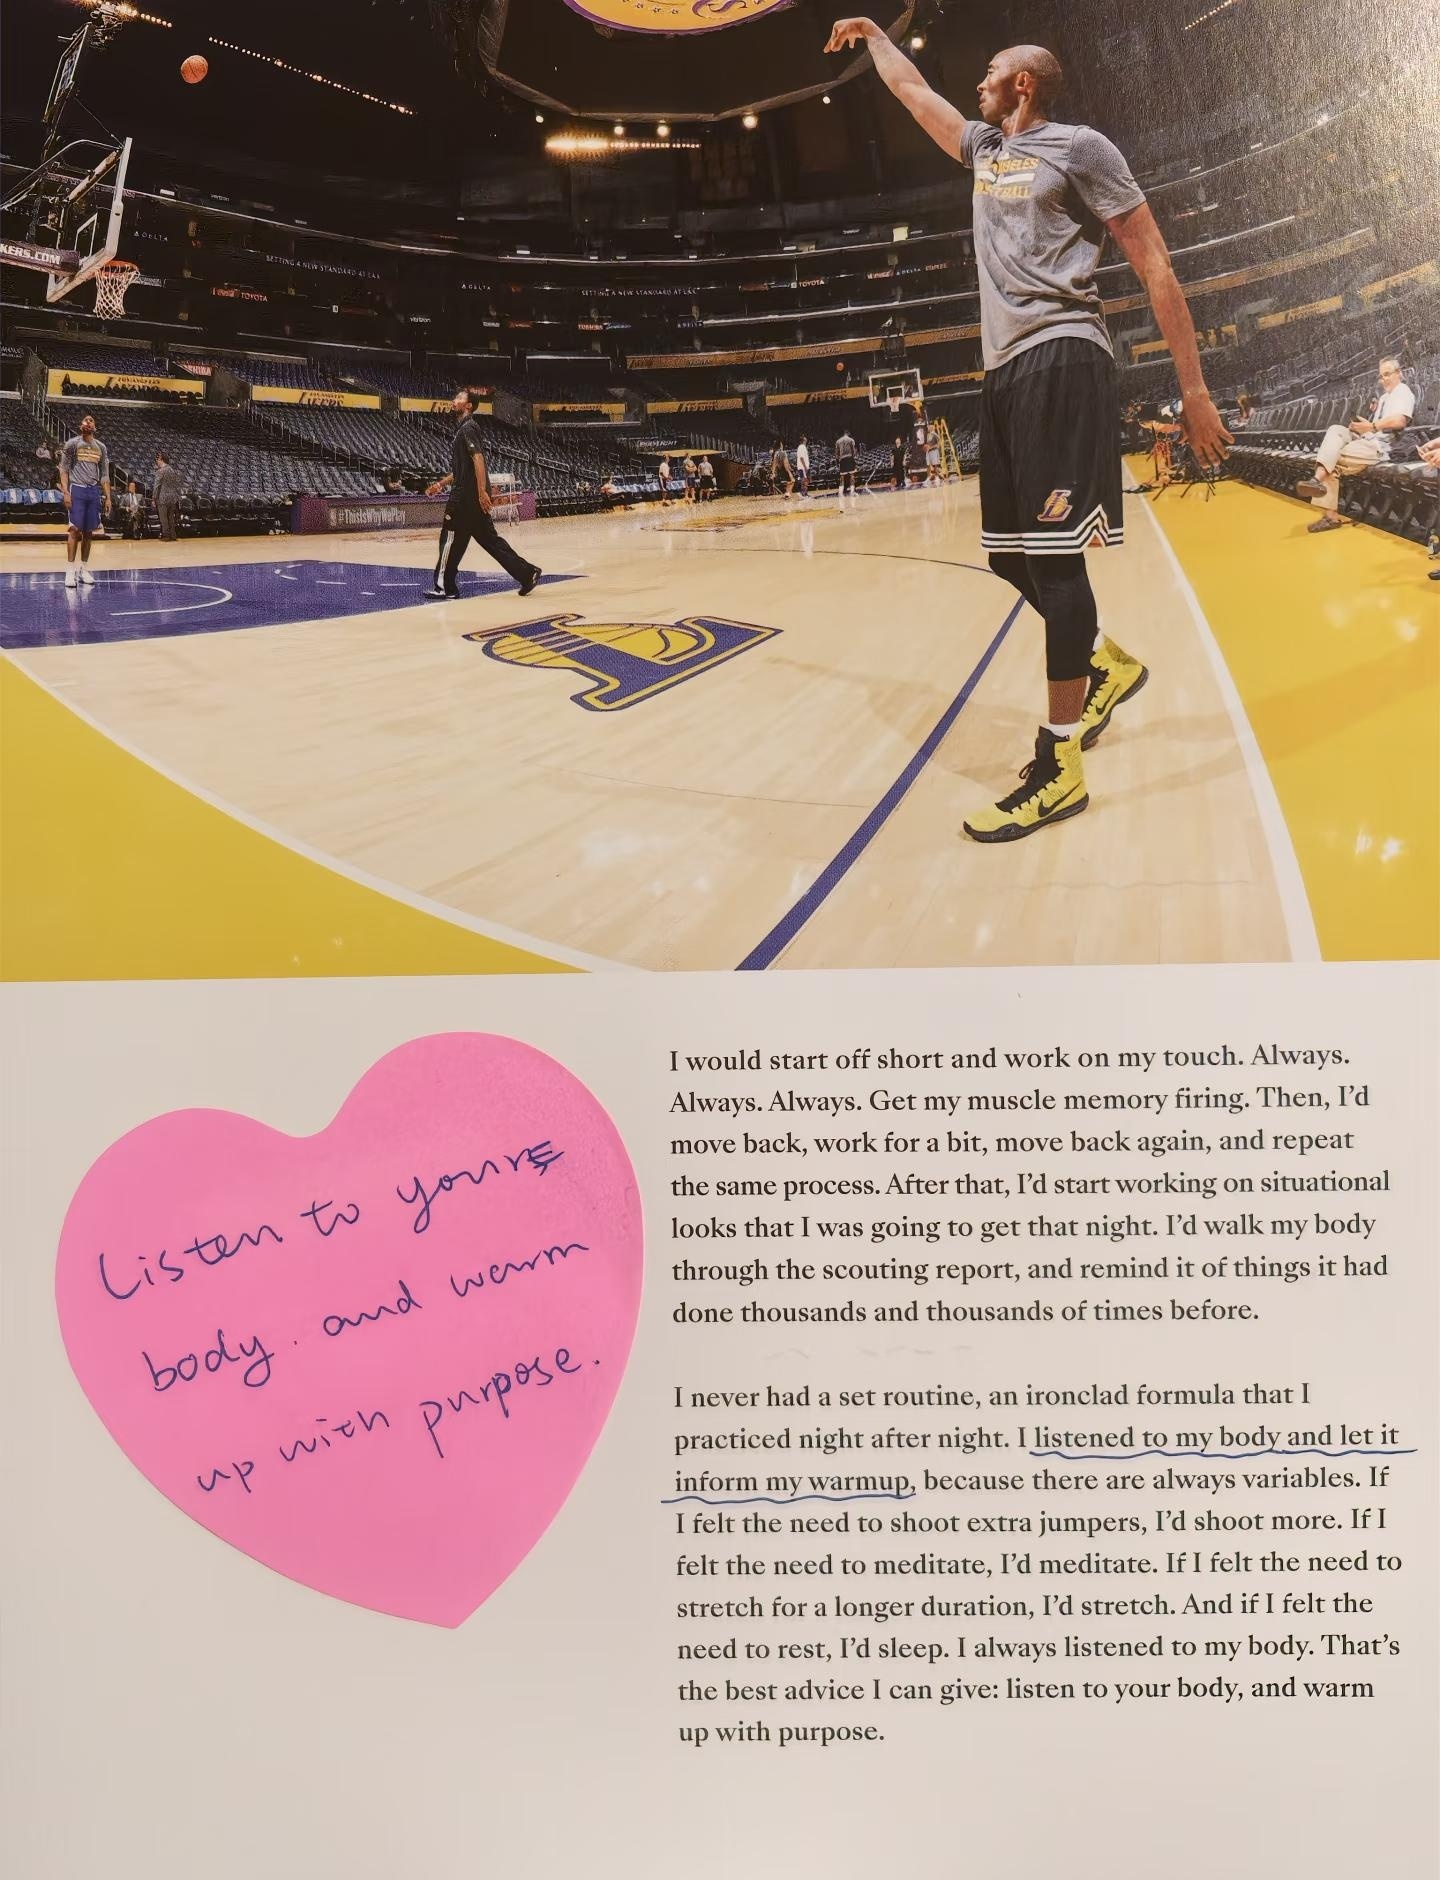 KERS.COM
DELTA
SETTING A NEW STANDARD AT LAX
TOYOTA
verizon
DELTA
SETTING A NEW STANDARD AT LAX
TOSHIBA
TOYOTA
DELTA
LAKERS
#ThisIsWhyWePlay
ANGELES
BASKETBALL
Listen to your
body. and warm
up with purpose.
I would start off short and work on my touch. Always.
Always. Always. Get my muscle memory firing. Then, I’d
move back, work for a bit, move back again, and repeat
the same process. After that, I’d start working on situational
looks that I was going to get that night. I’d walk my body
through the scouting report, and remind it of things it had
done thousands and thousands of times before.
I never had a set routine, an ironclad formula that I
practiced night after night. I listened to my body and let it
inform my warmup, because there are always variables. If
I felt the need to shoot extra jumpers, I’d shoot more. If I
felt the need to meditate, I’d meditate. If I felt the need to
stretch for a longer duration, I’d stretch. And if I felt the
need to rest, I’d sleep. I always listened to my body. That’s
the best advice I can give: listen to your body, and warm
up with purpose.